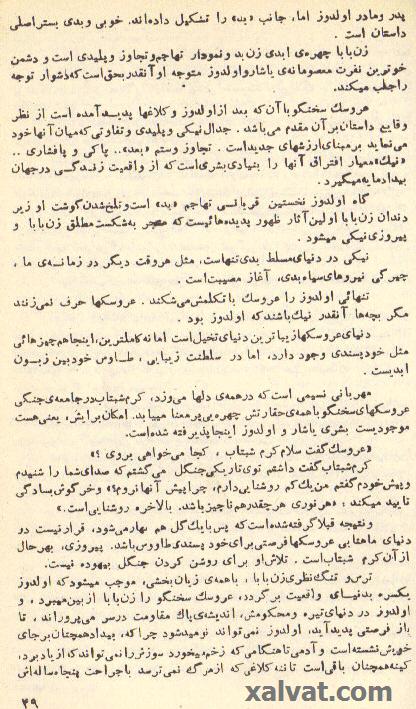 پدر ومادر اولدوز اما، جانب «بد» را تشکیل داده‌اند. خوبی وبدی بستراصلی
داستان است .
زن بابا چهره‌ی ابدی زن بد ونمودار تهاجم وتجاوز و پلیدی است و دشمن
خونریز نفرت معصومانه‌ی یاشارواولدوز متوجه او آنقدر بحق است که دشوار توجه
را جلب میکند.
عروسك سخنگو با آن که بعد ازاولدوز وکلاغها پدید آمده است از نظر
وقایع داستان بر آن مقدم می‌باشد . جدال نیکی وپلیدی وتفاوتی که میان آنها خود
می نماید بر مبنای ارزشهای جدید است . تجاوز وستم «بد».. پاکی و پافشاری ..
«نیك» معیار افتراق آنها را بنیادی بشری است که از واقعیت زندگی درجهان
بیدادمایه میگیرد .
گاه اولدوز نخستین قربانی تهاجم «بد» است وتلخ شدن گوشت او زیر
دندان زن بابا اولین آثار ظهور پدیده هائیست که منجر به شکست مطلق زن بابا و
پیروزی نیکی میشود .
نیکی در دنیای مسلط بدی تنهاست، مثل هروقت دیگر در زمانه‌ی ما ،
چیرگی نیروهای سیاه بدی، آغاز مصیبت است .
تنهائی اولدوز را عروسك با تکلمش می‌شکند . عروسکها حرف نمی‌زنند
مگر بچه‌ها آنقدر نیك باشند که اولدوز بود .
دنیای عروسکها زیباترین دنیای تخیل است اما نه کاملترین، اینجا هم چیزهائی
مثل خودپسندی وجود دارد، اما در سلطنت زیبایی ، طاوس خودبین زبون
ابدیست .
مهربانی نسیمی است که درهمه‌ی دلها می‌وزد، کرم شبتاب درجامعه‌ی جنگلی
عروسکهای سخنگو باهمه‌ی حقارتش چهره‌یی پرمعنا مییابد. امکان برایش، یعنی هست
موجودیست بشری یاشار و اولدوز اینجا پذیرفته شده‌است.
«عروسك گفت سلام کرم شبتاب ، کجا می‌خواهی بروی ؟»
کرم شبتاب گفت داشتم توی تاریکی جنگل می‌گشتم که صدای شما را شنیدم
و پیش خودم گفتم من یك کم روشنایی دارم، چرا پیش آنها نروم؟» وخرگوش بسادگی
تایید میکند : «هر نوری هر چقدر هم ناچیز باشد، بالاخره روشنایی است.»
و نتیجه قبلا گرفته شده است که پس با یك گل هم بهار می‌شود، قرار نیست در
دنیای ماهتابی عروسکها فرصتی برای خود پسندی طاووس باشد. پیروزی، بهرحال
از آن کرم شبتاب است . تلاش او برای روشن کردن جنگل بیهوده نیست.
ترس و تنگ نظری زن بابا ، باهمه‌ی زیان بخشی، موجب میشود که اولدوز
یکسره بدنیـای واقعیت برگردد، عروسك سخنگو را زن بابا از بین میبرد ، و
اولدوز در دنیای تیره ومحکومش، اندیشه‌ی پاك مقاومت درسر می‌پروراند، تا
باز فرصتی پدید آید، اولدوز نمی‌تواند نومید شود چرا که، بیداد همچنان برجای
خویش نشسته است و آدمی تا هنگامی که زخم میخورد سوزش را نمی‌تواند که از یاد ببرد،
کینه همچنان باقی است تا ننه کلاغی که از مرگ نمی‌ترسد باجراحت پنجاه ساله‌اش
۴۹
xalvat.com